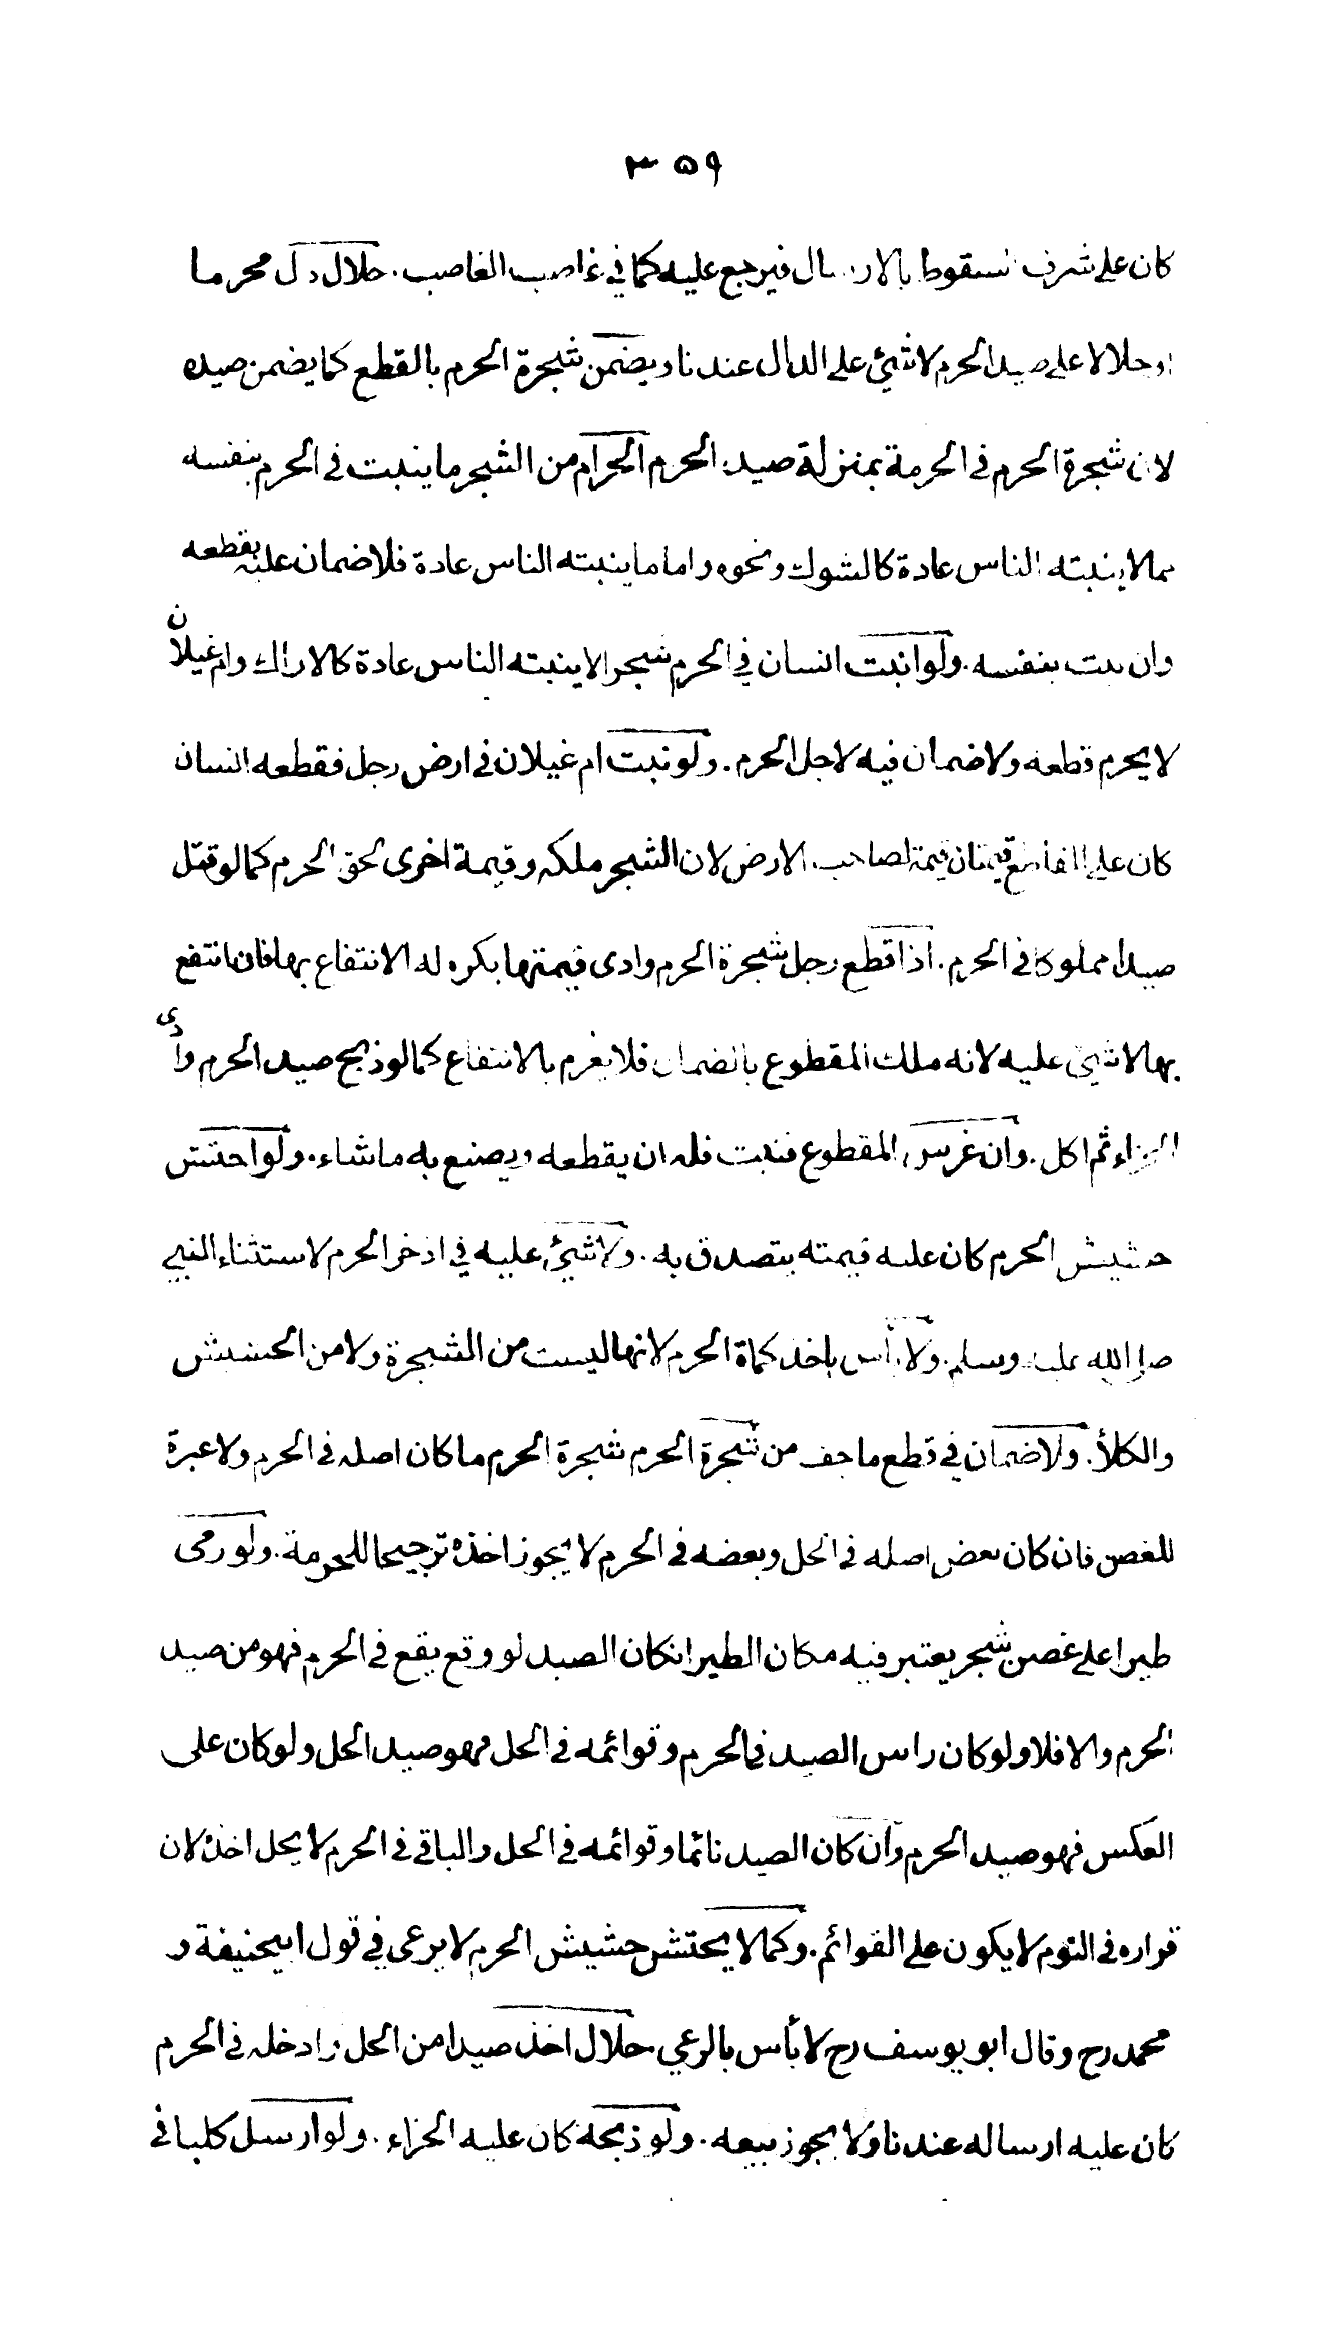 ۳۵۹
كان على شرف السقوط بالارسال فيرجع عليه كما في غاصب الغاصب. حلال دل محرما
او حلالا على صيد الحرم لا شيئ على الدال عندنا ويضمن شجرة الحرم بالقطع كما يضمن صيده
لان شجرة الحرم في الحرمة بمنزلة صيد الحرم الحرام من الشجر ما ينبت في الحرم بنفسه
مما لا ينبته الناس عادة كالشوك ونحوه واما ما ينبته الناس عادة فلا ضمان عليه بقطعه
وان نبت بنفسه. ولو انبت انسان في الحرم شجرا لا ينبته الناس عادة كالاراك وام غيلان
لا يحرم قطعه ولا ضمان فيه لاجل الحرم. ولو نبت ام غيلان في ارض رجل فقطعه انسان
كان على القاطع قيمتان قيمة لصاحب الارض لان الشجر ملكه وقيمة اخرى لحق الحرم كما لو قتل
صيدا مملوكا في الحرم. اذا قطع رجل شجرة الحرم وادى قيمتها يكره له الانتفاع بها فان انتفع
بها لا شيئ عليه لانه ملك المقطوع بالضمان فلا يغرم بالانتفاع كما لو ذبح صيد الحرم وادى
الجزاء ثم اكل. وان غرس المقطوع فنبت فله ان يقطعه ويصنع به ما شاء. ولو احتش
حشيش الحرم كان عليه قيمته يتصدق به. ولا شيئ عليه في اذخر الحرم لاستثناء النبي
صلى الله عليه وسلم. ولا بأس باخذ كماة الحرم لانها ليست من الشجرة ولا من الحشيش
والكلأ. ولا ضمان في قطع ما جف من شجرة الحرم شجرة الحرم ما كان اصله في الحرم ولا عبرة
للغصن فان كان بعض اصله في الحل وبعضه في الحرم لا يجوز اخذه ترجيحا للحرمة. ولو رمى
طيرا على غصن شجر يعتبر فيه مكان الطير انكان الصيد لو وقع يقع في الحرم فهو من صيد
الحرم والا فلا ولو كان راس الصيد في الحرم وقوائمه في الحل فهو صيد الحل ولو كان على
العكس فهو صيد الحرم وان كان الصيد نائما وقوائمه في الحل والباقي في الحرم لا يحل اخذه لان
قراره في النوم لا يكون على القوائم. وكما لا يحتش حشيش الحرم لا يرعى في قول ابيحنيفة و
محمد رح وقال ابو يوسف رح لا بأس بالرعي حلال اخذ صيدا من الحل وادخله في الحرم
كان عليه ارساله عندنا ولا يجوز بيعه. ولو ذبحه كان عليه الجزاء. ولو ارسل كلبا في